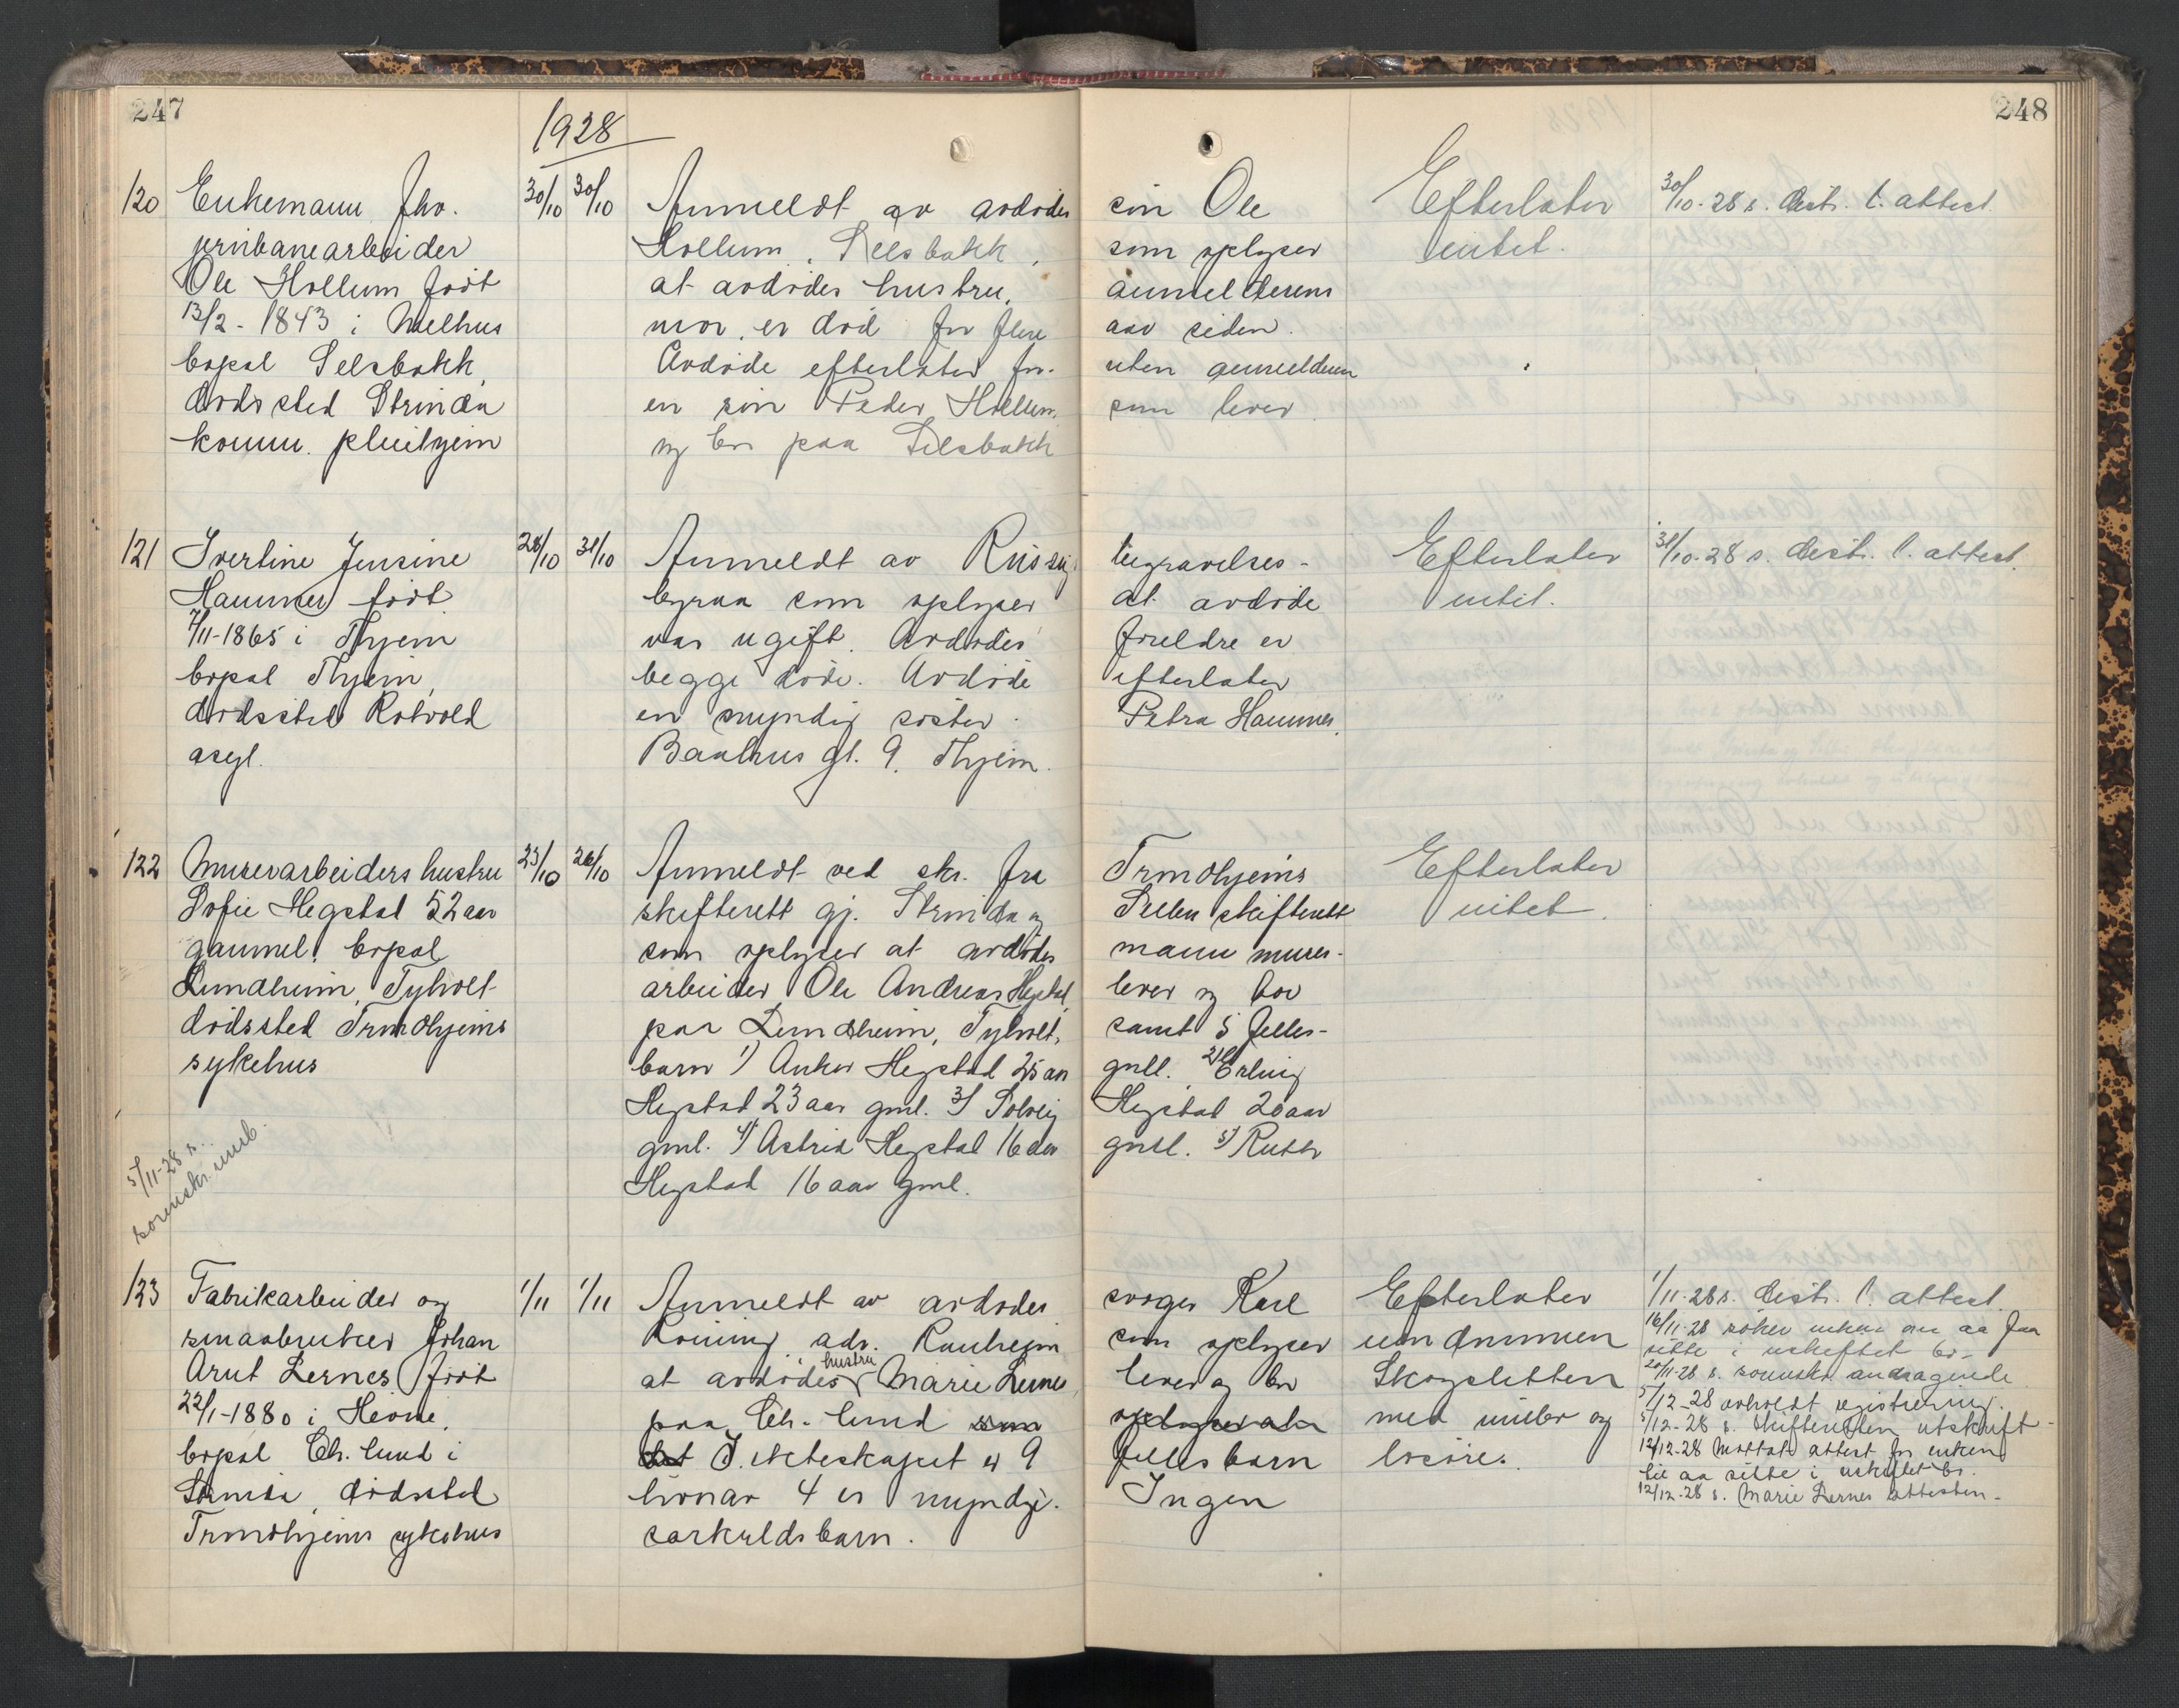 247
248
1928
120
Enkemann fhv.
jernbanearbeider
Ole Hollum født
13/2-1843 i Melhus
bopæl Selsbakk,
dødssted Strinda
komm. pleiehjem
30/10 30/10
Anmeldt av avdødes søn Ole
Hollum, Selsbakk, som oplyser
at avdødes hustru, anmelderens
mor, er død for flere aar siden.
Avdøde efterlater for- uten anmelderen
en søn Peder Hollum, som lever
og bor paa Selsbakk
Efterlater
intet.
30/10-28 s. distr. l. attest.
121
Ivertine Jensine
Hammer født
7/11-1865 i Thjem
bopæl Thjem,
dødssted Rotvold
asyl.
28/10 31/10
Anmeldt av Russøy begravelses-
byraa som oplyser at avdøde
var ugift. Avdødes foreldre er
begge døde. Avdøde efterlater
en myndig søster Petra Hammer,
Baahus gt. 9. Thjem.
Efterlater
intet.
31/10-28 s. distr. l. attest.
122
Murerarbeiders hustru
Sofie Hegstad 52 aar
gammel, bopæl
Lundheim, Tyholt
dødssted Trondhjems
sykehus
5/11-28 s.
sorenskr. umb.
23/10 26/10
Anmeldt ved skr. fra Trondhjems
skifterett gj. Strinda og Selbu skifterett
som oplyser at avdødes mann murer-
arbeider Ole Andreas Hegstad, lever og bor
paa Lundheim, Tyholt, samt 5 felles-
barn 1) Anker Hegstad 25 aar gml. 2) Erling
Hegstad 23 aar gml. 3) Solveig Hegstad 20 aar
gml. 4) Astrid Hegstad 16 aar gml. 5) Ruth
Hegstad 16 aar gml.
Efterlater
intet.
123
Fabrikarbeider og
smaabruker Johan
Arnt Lernes født
22/1-1880 i Hevne,
bopæl Ch. lund i
Strinda, dødssted
Trondhjems sykehus
1/11 1/11
Anmeldt av avdødes svoger Karl
Rønning adr. Ranheim som oplyser
at avdødes hustru Marie Lernes lever og bor
paa Ch. lund som oplyser at
det I ekteskapet er 9 fellesbarn
hvorav 4 er myndige. Ingen
særkuldsbarn.
Efterlater
eiendommen
Skogsletten
med innbo og
løsøre.
1/11-28 s. distr. l. attest.
16/11-28 søker enken om aa faa
sitte i uskiftet bo-
20/11-28 s. sorenskr. andragende
5/12-28 avholdt registrering.
5/12-28 s. skifteretten utskrift-
12/12-28 Mottatt attest for enken
til aa sitte i uskiftet bo.
12/12-28 s. Marie Lernes attesten-